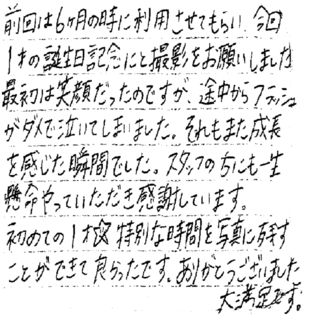 前回は6ヶ月の時に利用させてもらい、今回
1才の誕生日記念にと撮影をお願いしました
最初は笑顔だったのですが、途中からフラッシュ
がダメで泣いてしまいました。それもまた成長
を感じた瞬間でした。スタッフの方にも一生
懸命やっていただき感謝しています。
初めての1才☆特別な時間を写真に残す
ことができて良かったです。ありがとうございました
大満足です。